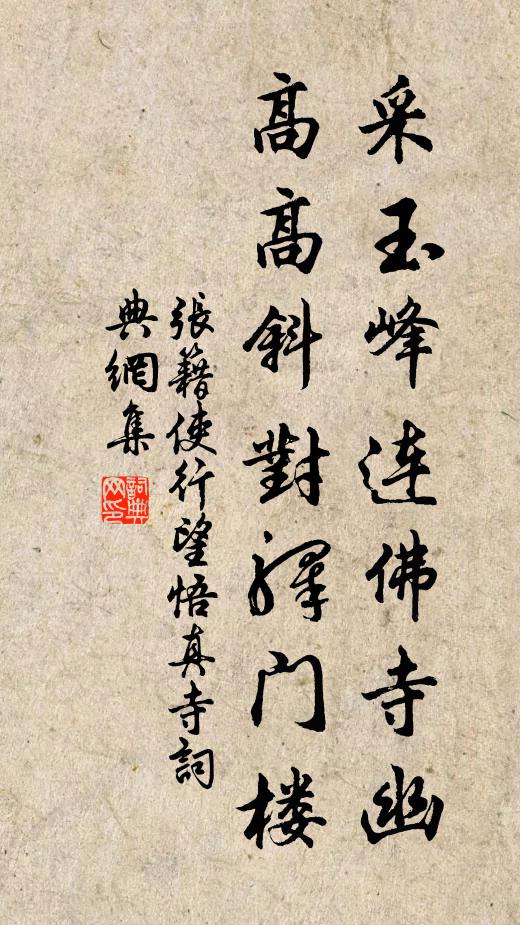 采玉峰连佛寺幽
高高斜對驛门楼
張籍使行望悟真寺詞
典網集
詞典网印